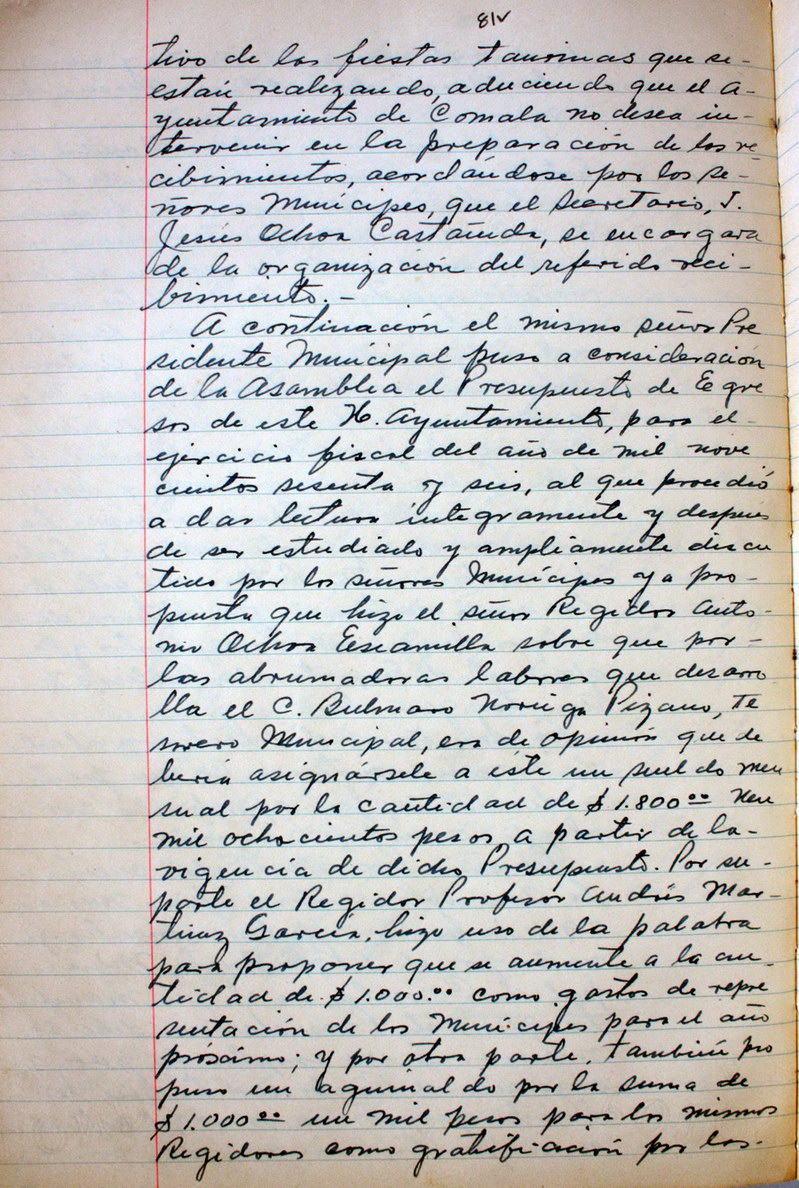 81v
tivo de las fiestas taurinas que se-
están realizando, aduciendo que el A-
yuntamiento de Comala no desea in-
tervenir en la preparación de los re-
cibimientos, acordándose por los se-
ñores Munícipes, que el Secretario, J.
Jesús Ochoa Castañeda, se encargara
de la organización del referido reci-
bimiento.-
A continación el mismo señor Pre
sidente Municipal puso a consideración
de la Asamblea el Presupuesto de Egre
sos de este H. Ayuntamiento, para el-
ejercicio fiscal del año de mil nove
cientos sesenta y seis, al que procedió
a dar lectura integramente y después
de ser estudiado y ampliamente discu
tido por los señores Munícipes y a pro-
puesta que hizo el señor Regidor Anto-
nio Ochoa Escamilla sobre que por-
las abrumadoras labores que desarro
lla el C. Bulmaro Noriega Pizano, Te
sorero Municipal, era de opinión que de
bería asignársele a éste un sueldo men
sual por la cantidad de $1.800.00 Un
mil ochocientos pesos a partir de la-
vigencia de dicho Presupuesto. Por su-
parte el Regidor Profesor Andrés Mar-
tínez García, hizo uso de la palabra
para proponer que se aumente a la can-
tidad de $1.000.00 como gastos de repre
sentación de los Munícipes para el año
próximo; y por otra parte, también pro
puso un aguinaldo por la suma de
$1.000.00 un mil pesos para los mismos
Regidores como gratificación por los-